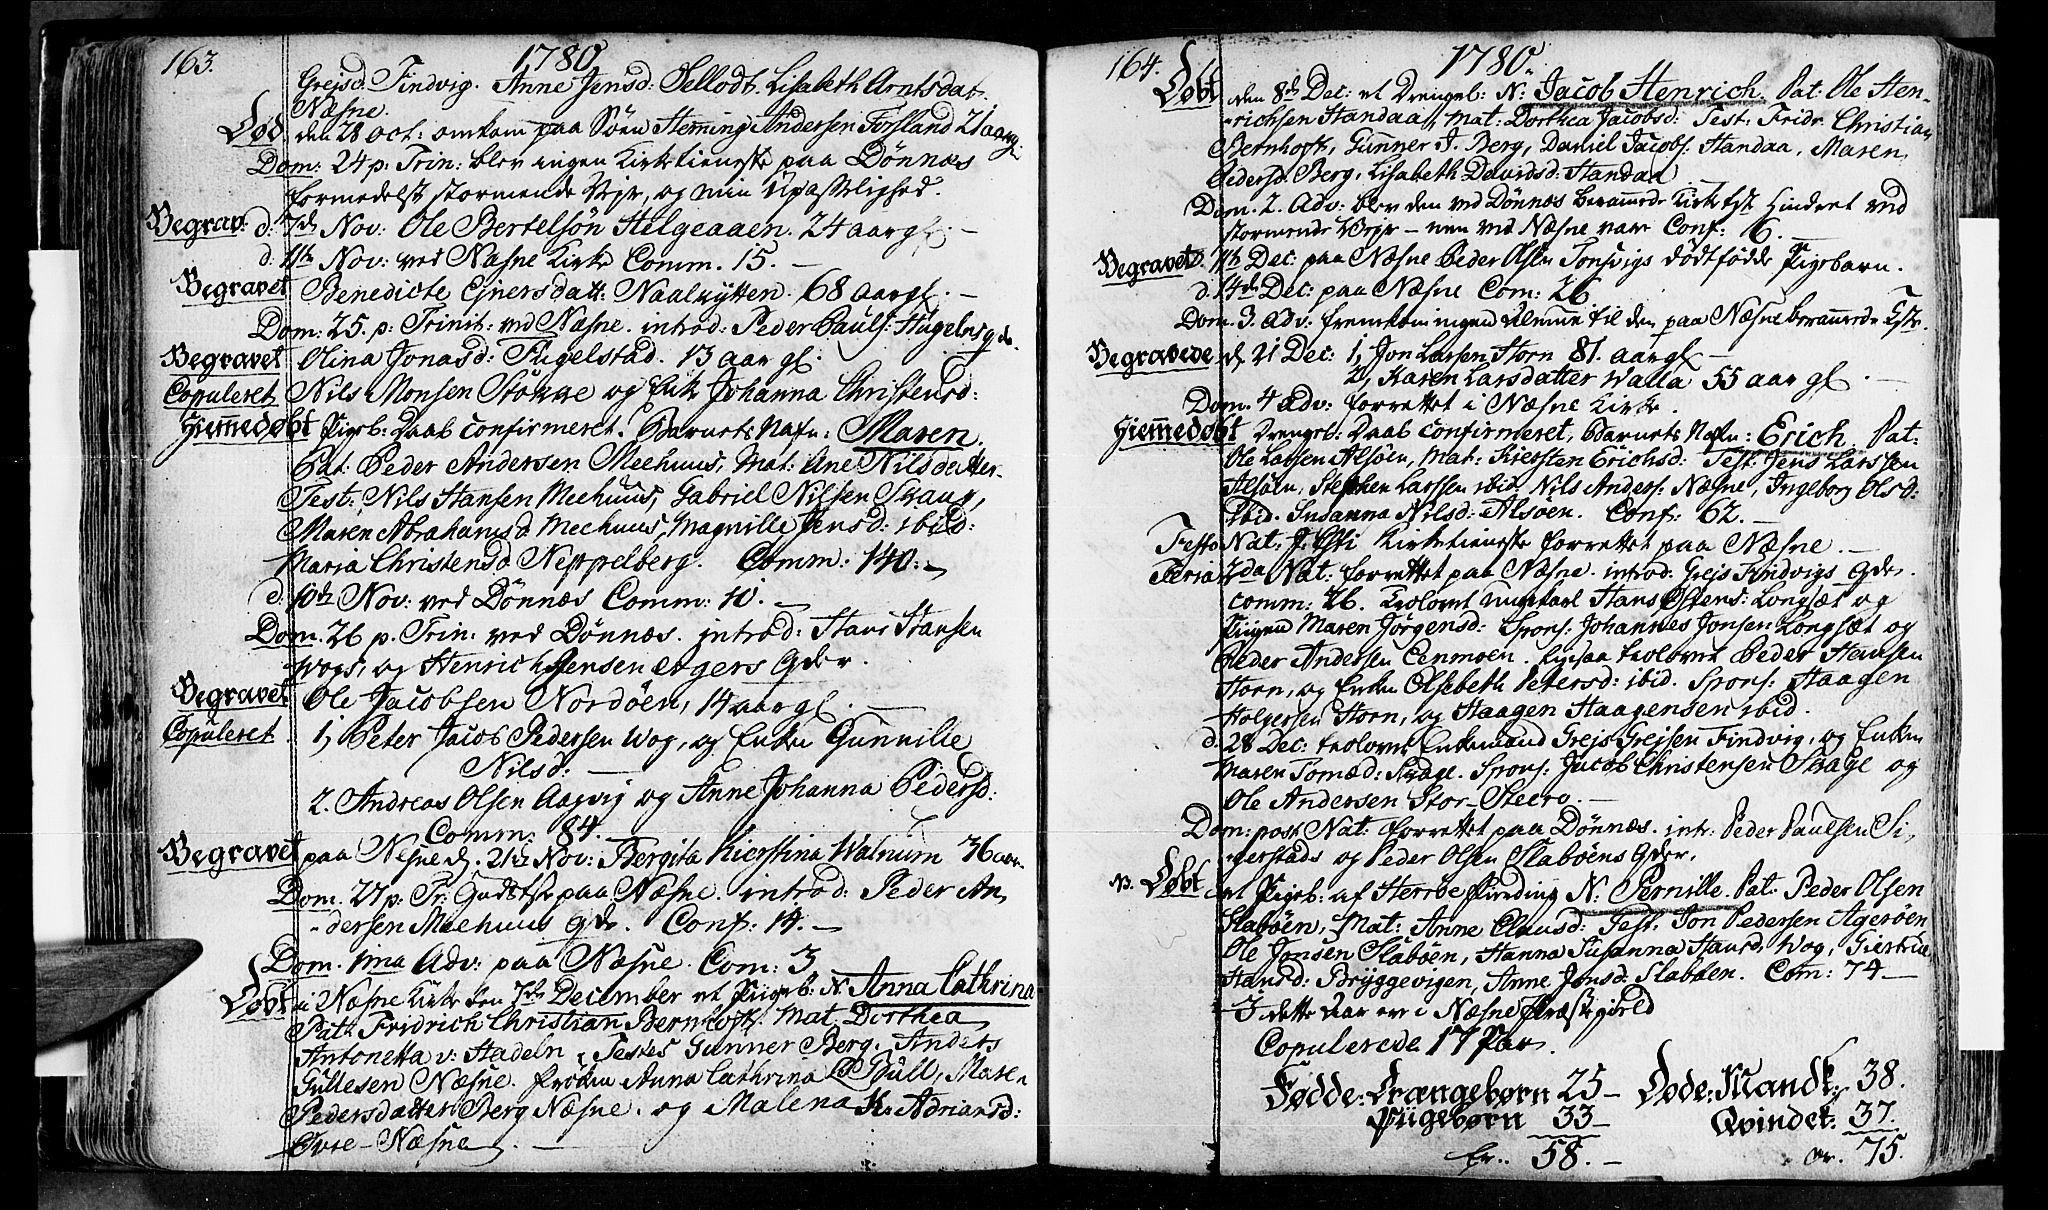 163.
1780
Grejsd. Findvig. Anne Jensd: Sellodt. Lisabeth Arntsdat.
Næsne.
Død den 28 Oct: omkom paa Søen Hemming Andersen Forsland 21 aar gl.
Dom: 24 p: Trin: blev ingen Kirketieneste paa Dönnæs
formedelst stormende Vejr, og min Upasselighed.
Begrav: d: 7de Nov: Ole Bertelsön Helgeaaen. 24 aar gl. –
d. 11te Nov: ved Næsne Kirke Comm. 15. –
Begravet Benedicte Ejnersdatt: 68 aar gl. –
Dom: 25. p: Trinit: ved Næsne. introd: Peder Pauls:
Begravet Olina Jonasd: Fugelstad. 13 aar gl.
Copuleret Nils Monsen og Enk Johanna Christensd:
Hiemmedøbt Pigeb: Daab confirmeret. Barnets Nafn: Maren.
Pat: Peder Andersen Meehuus, Mat: Ane Nilsdatter
Test: Nils Hansen Meehuus, Gabriel Nilsen Skaug,
Maren Abrahamsd Meehuus, Magnille Jensd: ibid:
Maria Christensd Neppelberg. Comm: 140. –
d: 10de Nov: ved Dönnæs Comm: 10. –
Dom. 26 p. Trin: ved Dönnæs. introd: Hans Hansen
Wogs, og Henrich Jensen Gder.
Begravet Ole Jacobsen Nordöen, 14 aar gl. –
Copuleret 1, Peter Jacob Pedersen Wog, og Enken Gunnille
Nilsd: –
2. Andreas Olsen Aagvig og Anne Johanna Pedersd:
Comm: 84.
Begravet paa Nesne d. 21de Nov: Bergita Kierstina Walnum 36 aar.
Dom. 27 p: Tr: Gudstste paa Næsne. introd: Peder An
dersen Meehuus Gde. Conf: 14. –
Dom. 1ma Adv: paa Næsne. Com: 3
Døbt i Næsne Kirke den 7de December et Pigeb: N. Anna Cathrina
Pat: Fridrich Christian Bernhoft. Mat Dorthea
Antonetta v: Hadeln, Testes Gunner Berg. Anders
Gullesen Næsne. Frøken Anna Cathrina Bull, Maren
Pedersdatter Berg Næsne. og Malena Adriansd:
Øvre-Næsne. –
164.
1780.
Døbt den 8de Dec: et Drengeb: N: Jacob Henrich. Pat: Ole Hen-
richsen Handaa, Mat: Dorthea Jacobsd: Test: Fridr Christian
Bernhoft, Gunner J. Berg, Daniel Jacobs: Handaa, Maren
Pedersd. Berg, Lisabeth Davidsd: Handaa
Dom. 2. Adv: blev den ved Dönnæs berammede Kirketste hindret ved
stormende Vejr – men ved Næsne var Conf: 16. –
Begravet d. 11te Dec: paa Næsne Peder Olsen Sonsvigs dödfödde Pigebarn.
d. 14de Dec: paa Næsne Com: 26
Dom. 3. Adv: fremkom ingen Almue til den paa Næsne berammede Tste.
Begravede d 21 Dec: 1, Jon Larsen Horn 81. aar gl –
2, Karen Larsdatter Walla 55 aar gl. –
Dom. 4 Adv: forrettet i Næsne Kirke.
Hiemmedøbt Drengeb: Daab confirmeret, Barnets Nafn: Erich. Pat:
Ole Larsen Alsöen, Mat: Kiersten Erichsd: Test: Jens Larsen
Alsöen, Stephen Larssen ibid, Nils Anders: Næsne, Ingeborg Olsd:
ibid. Susanna Nilsd: Alsöen. Conf: 62. –
Festo Nat: J: Csti Kirketieneste forrettet paa Næsne. –
Feria 2da Nat: forrettet paa Næsne. introd: Grejs Findvigs Gder.
comm: 26. trolovet ungkarl Hans Langsæt og
Pigen Maren Jørgensd: Spons: Johannes Jonsen Langsæt og
Peder Andersen Eenmoen. Ligesaa trolovet Peder Hansen
Horn, og Enken Olsebeth Petersd: ibid. Spons: Haagen
Holgersen Horn, og Haagen Haagensen ibid.
d. 28 Dec: trolovet Enkemand Grejs Grejsen Findvig, og Enken
Maren Tomæd: Skage. Spons: Jacob Christensen Skage og
Ole Andersen Stor-Steero. –
Dom: post Nat: forrettet paa Dönnæs. intr: Peder Paulsen Si-
gerstads og Peder Olsen Slaböens Gder.
N. Døbt et Pigeb: af Herröe N. Pernille. Pat: Peder Olsen
Slaböen, Mat: Anne Clausd: Test: Jon Pedersen Ageröen
Ole Jonsen Slaböen, Hanna Susanna Hansd. Wog, Giertrue
Hansd: Bryggevigen, Anne Jonsd: Slaböen. Com: 74 –
I dette Aar er i Næsne Præstegield
Copulerede 17 Par.
Fødde: Drængebørn 25 – Døde: Mandk: 38.
Piigebørn 33 – Qvindek: 37.
er.. 58. – er. 75.